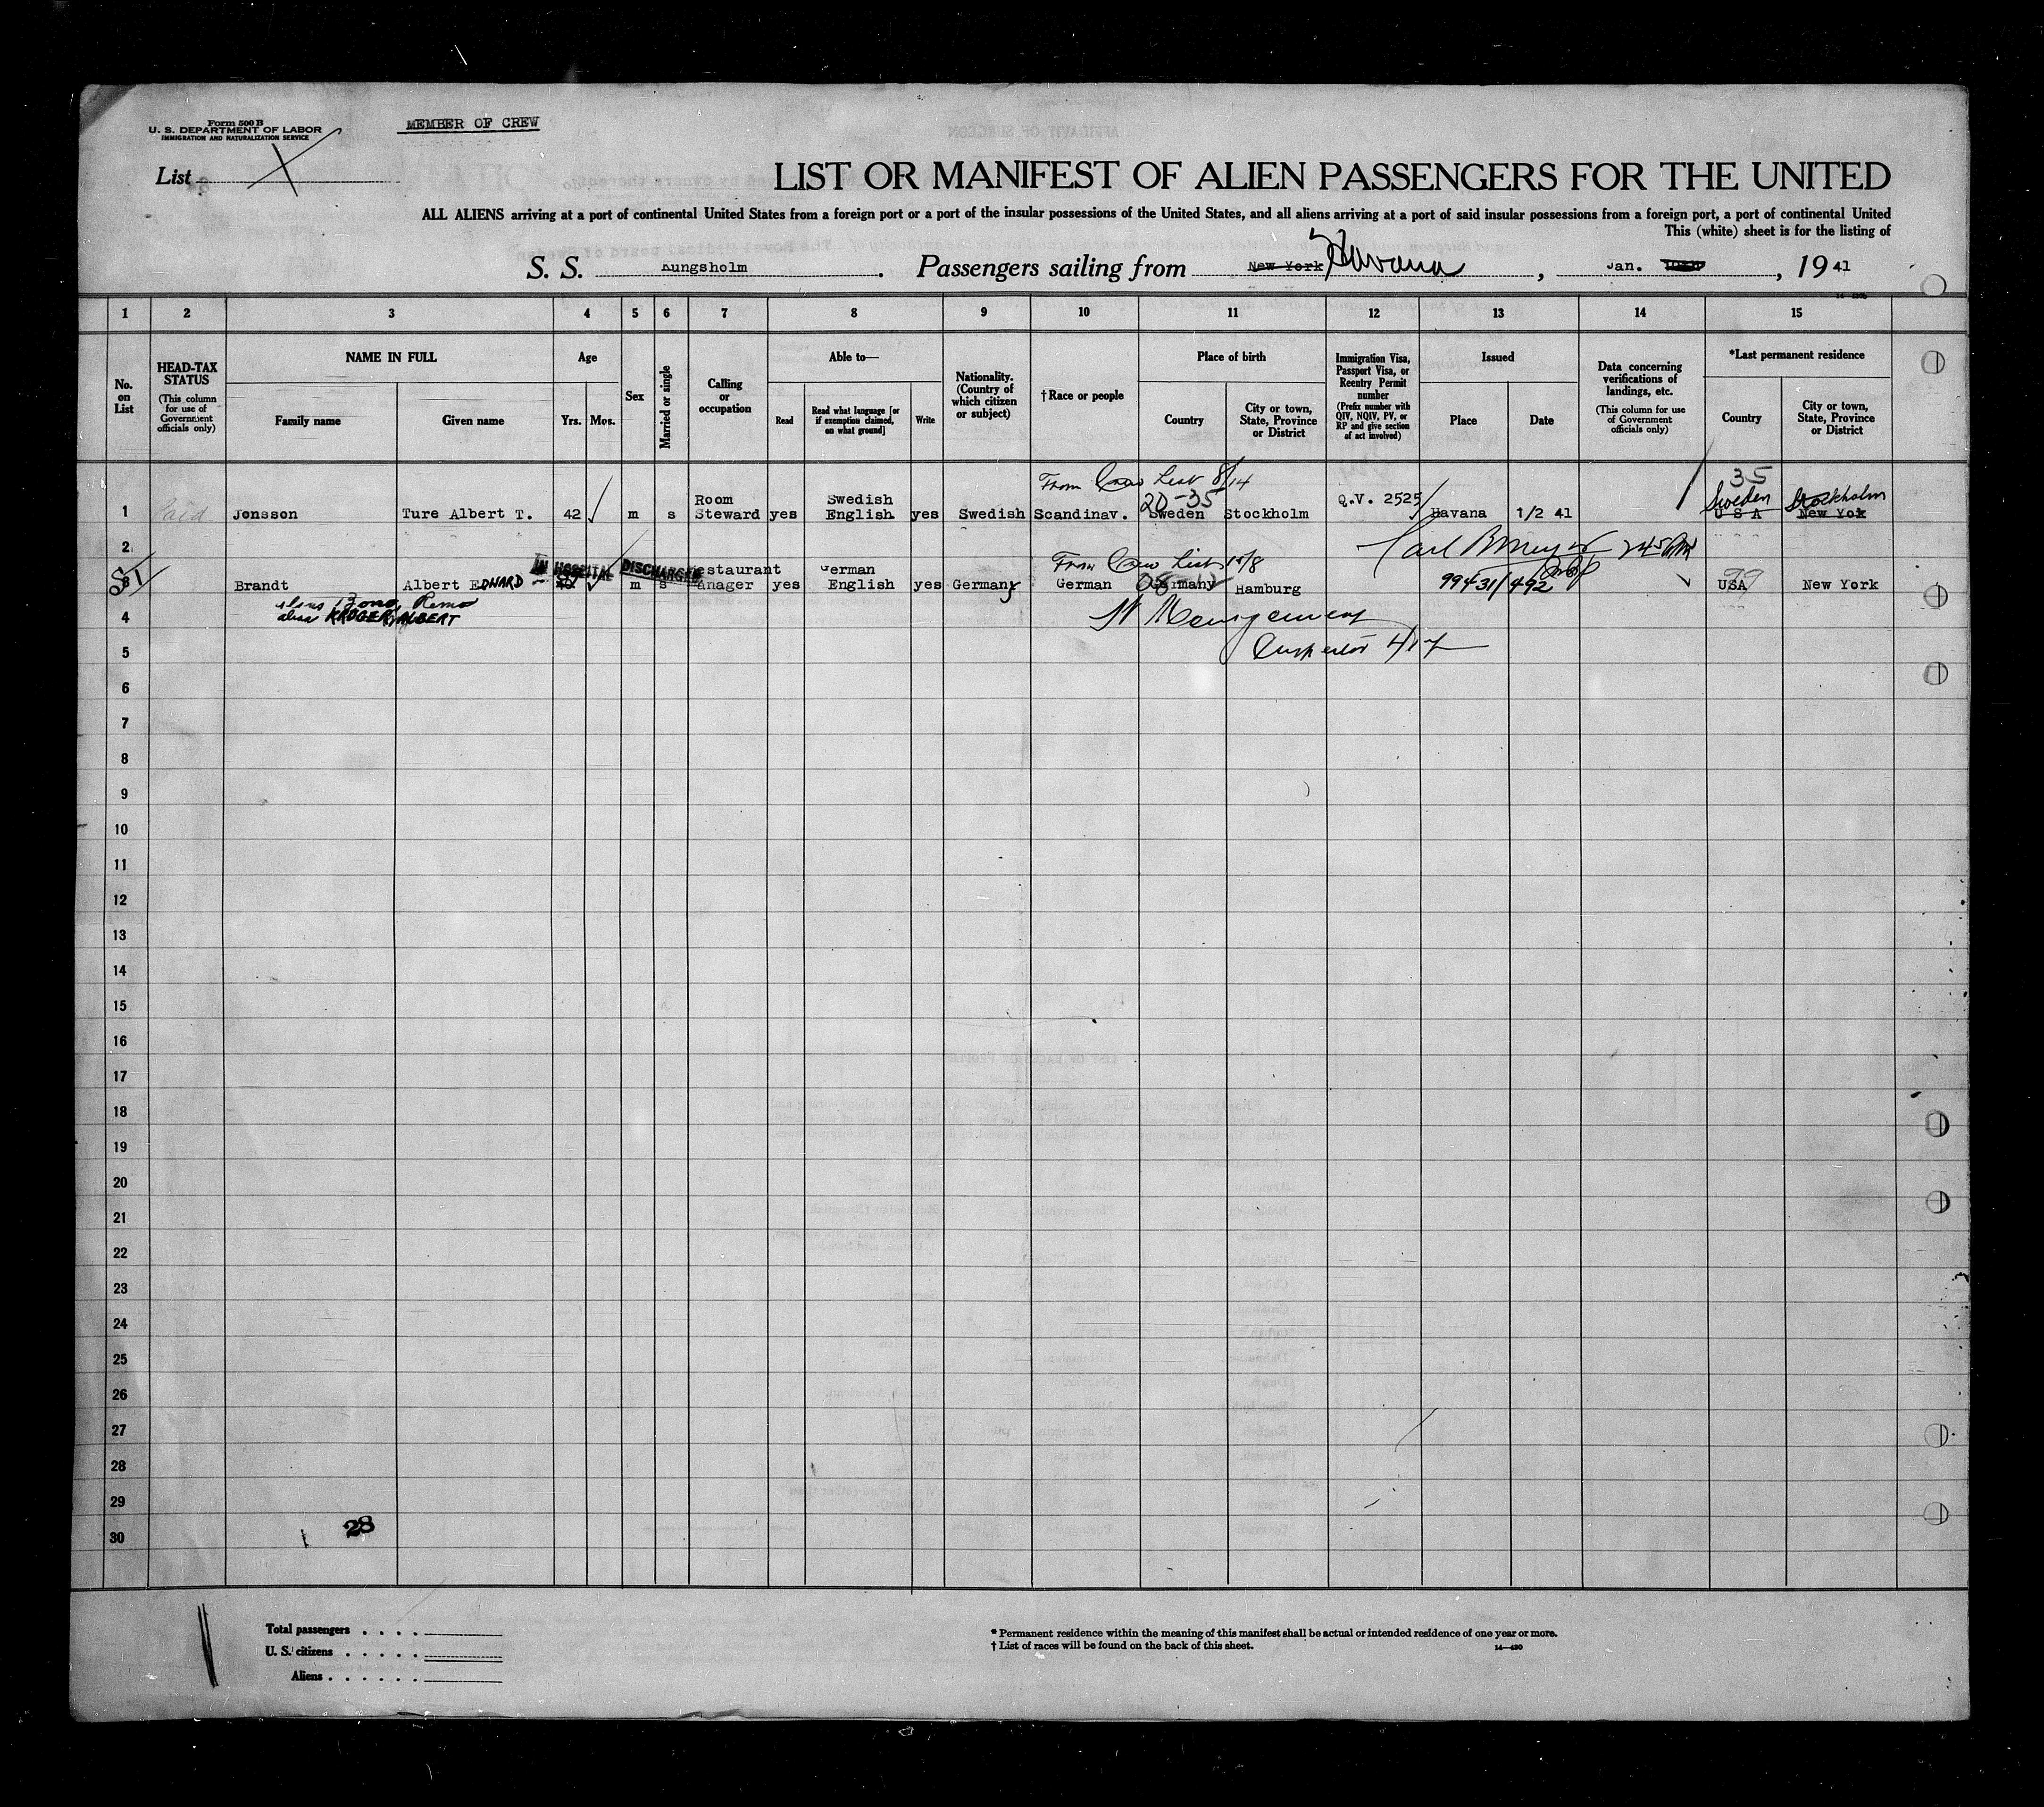 Form 500 B
U. S. DEPARTMENT OF LABOR
IMMIGRATION AND NATURALIZATION SERVICE
MEMBER OF CREW
List
LIST OR MANIFEST OF ALIEN PASSENGERS FOR THE UNITED
ALL ALIENS arriving at a port of continental United States from a foreign port or a port of the insular possessions of the United States, and all aliens arriving at a port of said insular possessions from a foreign port, a port of continental United
This (white) sheet is for the listing of
S. S. Kungsholm. Passengers sailing from New York Havana, Jan. , 19 41
1 2 3 4 5 6 7 8 9 10 11 12 13 14 15
No. on List
HEAD-TAX STATUS
(This column for use of Government officials only)
NAME IN FULL
Family name
Given name
Age
Yrs.
Mos.
Sex
Married or single
Calling or occupation
Able to—
Read
Read what language [or if exemption claimed, on what ground]
Write
Nationality. (Country of which citizen or subject)
†Race or people
Place of birth
Country
City or town, State, Province or District
Immigration Visa, Passport Visa, or Reentry Permit number
(Prefix number with QIV, NQIV, PV, or RP and give section of act involved)
Issued
Place
Date
Data concerning verifications of landings, etc.
(This column for use of Government officials only)
*Last permanent residence
Country
City or town, State, Province or District
From Crew List 8/14
20-35
35
Sweden Stockholm
1 Paid Jonsson Ture Albert T. 42 m s Room Steward yes Swedish English yes Swedish Scandinav. Sweden Stockholm Q.V. 2525 Havana 1/2 41 U S A New York
2
245 PM
IN HOSPITAL DISCHARGED
From Crew List 15/8
3 Brandt Albert EDWARD m s Restaurant Manager yes German English yes Germany German Germany Hamburg 99431/492 99 USA New York
alias Bono, Remo
alias KRUGER, ALBERT
4
Inspector
5
6
7
8
9
10
11
12
13
14
15
16
17
18
19
20
21
22
23
24
25
26
27
28
29
30
28
Total passengers . . . .
U. S. citizens . . . . .
Aliens . . . . . .
* Permanent residence within the meaning of this manifest shall be actual or intended residence of one year or more.
† List of races will be found on the back of this sheet.
14—430